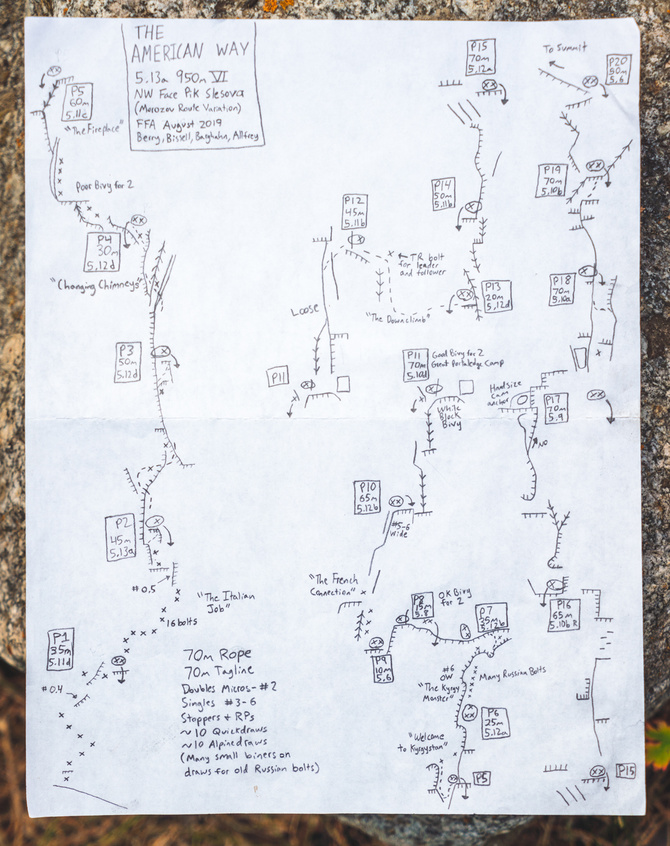 THE
AMERICAN WAY
5.13a 950m VI
NW Face Pik Slesova
(Morozov Route Variation)
FFA August 2019
Berry, Bissell, Barghahn, Allfrey
P5
60m
5.11c
"The Fireplace"
Poor Bivy for 2
P4
30m
5.12d
"Changing Chimneys"
P3
50m
5.12d
P2
45m
5.13a
#0.5
"The Italian
Job"
16 bolts
P1
35m
5.11d
#0.4
70m Rope
70m Tagline
Doubles Micros-#2
Singles #3-6
Stoppers + RPs
~10 Quickdraws
~10 Alpinedraws
(Many small biners on
draws for old Russian bolts)
P12
45m
5.11b
TR bolt
for leader
and follower
Loose
"The Downclimb"
P11
P11
70m
5.10d
Good Bivy for 2
Great Portaledge Camp
White
Block
Bivy
P10
65m
5.12b
#5-6
wide
"The French
Connection"
P8
15m
5.8
OK Bivy
for 2
P7
25m
5.12b
P9
10m
5.6
#6
OW
Many Russian Bolts
"The Kyrgy
Monster"
P6
25m
5.12a
"Welcome
to Kyrgystan"
P5
P15
70m
5.12a
P14
50m
5.11b
P13
20m
5.12d
To Summit
P20
50m
5.6
P19
70m
5.10b
P18
70m
5.10a
Handsize
cam
anchor
P17
70m
5.9
NO
P16
65m
5.10b R
P15